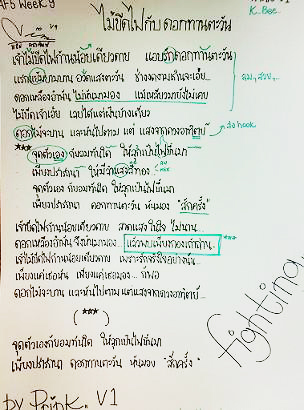 AFS Week 9
K. Bee.
ไม้ขีดไฟกับดอกทานตะวัน
เจ้าไม้ขีดไฟก้านน้อยเดียวดาย แอบรักดอกทานตะวัน
แรกแย้มยามบาน อวดแสงตะวัน ช่างงดงามเกินจะเอ่ย...
ดอกเหลืองอำพัน ไม่หันมามอง แม้เหลียวมายังไม่เคย
ไม้ขีดเจ้าเอ๋ย เลยได้แต่ฝันข้างเดียว
ดอกไม้จะบาน และหันไปตาม แต่ แสงจากดวงอาทิตย์
ส่ง hook
*** จุดตัวเองก็ยอมทันใด ให้ลุกเป็นไฟขึ้นมา
เพียงปรารถนา ให้มีวันแสงสีทอง
จุดตัวเอง ก็ยอมทันใด ให้ลุกเป็นไฟขึ้นมา
เพียงปรารถนา ดอกทานตะวัน หันมอง "สักครั้ง"
เจ้าขีดไฟก้านน้อยเดียวดาย สาดแสง ไม่นาน...
ดอกเหลืองอำพัน จึงหันมามอง แล้วพบเพียงกองเถ้าถ่าน ***
เจ้าไม้ขีดไฟก้านน้อยเดียวดาย
เพียงแค่เธอหัน เพียงแค่เธอมอง... ก็พอ
ดอกไม้จะบาน และหันไปตาม แต่แสงจากดวงอาทิตย์...
( *** )
จุดตัวเองก็ยอมทันใด ให้ลุกเป็นไฟขึ้นมา
เพียงปรารถนา ดอกทานตะวัน หันมอง "สักครั้ง"
fighting.
by Prink. V1